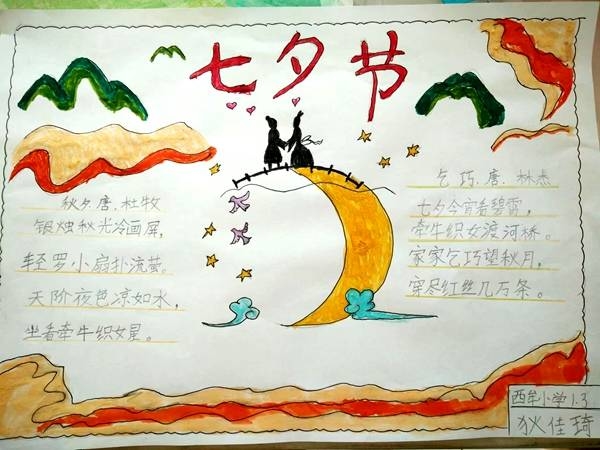 七夕节
秋夕唐.杜牧
银烛秋光冷画屏,
轻罗小扇扑流萤。
天阶夜色凉如水,
坐看牵牛织女星。
乞巧.唐.林杰
七夕今宵看碧霄,
牵牛织女渡河桥。
家家乞巧望秋月,
穿尽红丝几万条。
西牟小学1.3
狄佳琦